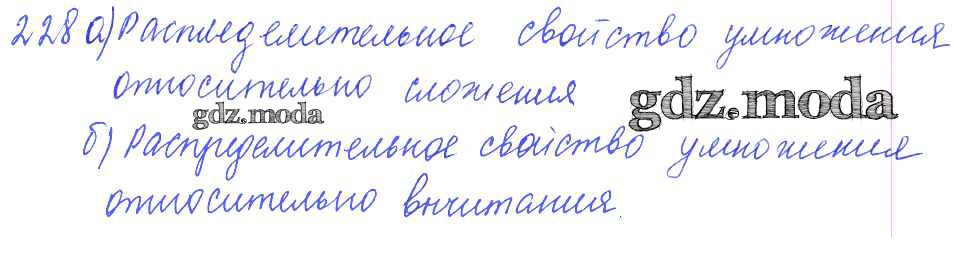 228 а) Распределительное свойство умножения
относительно сложения
gdz.moda
gdz.moda
б) Распределительное свойство умножения
относительно вычитания.